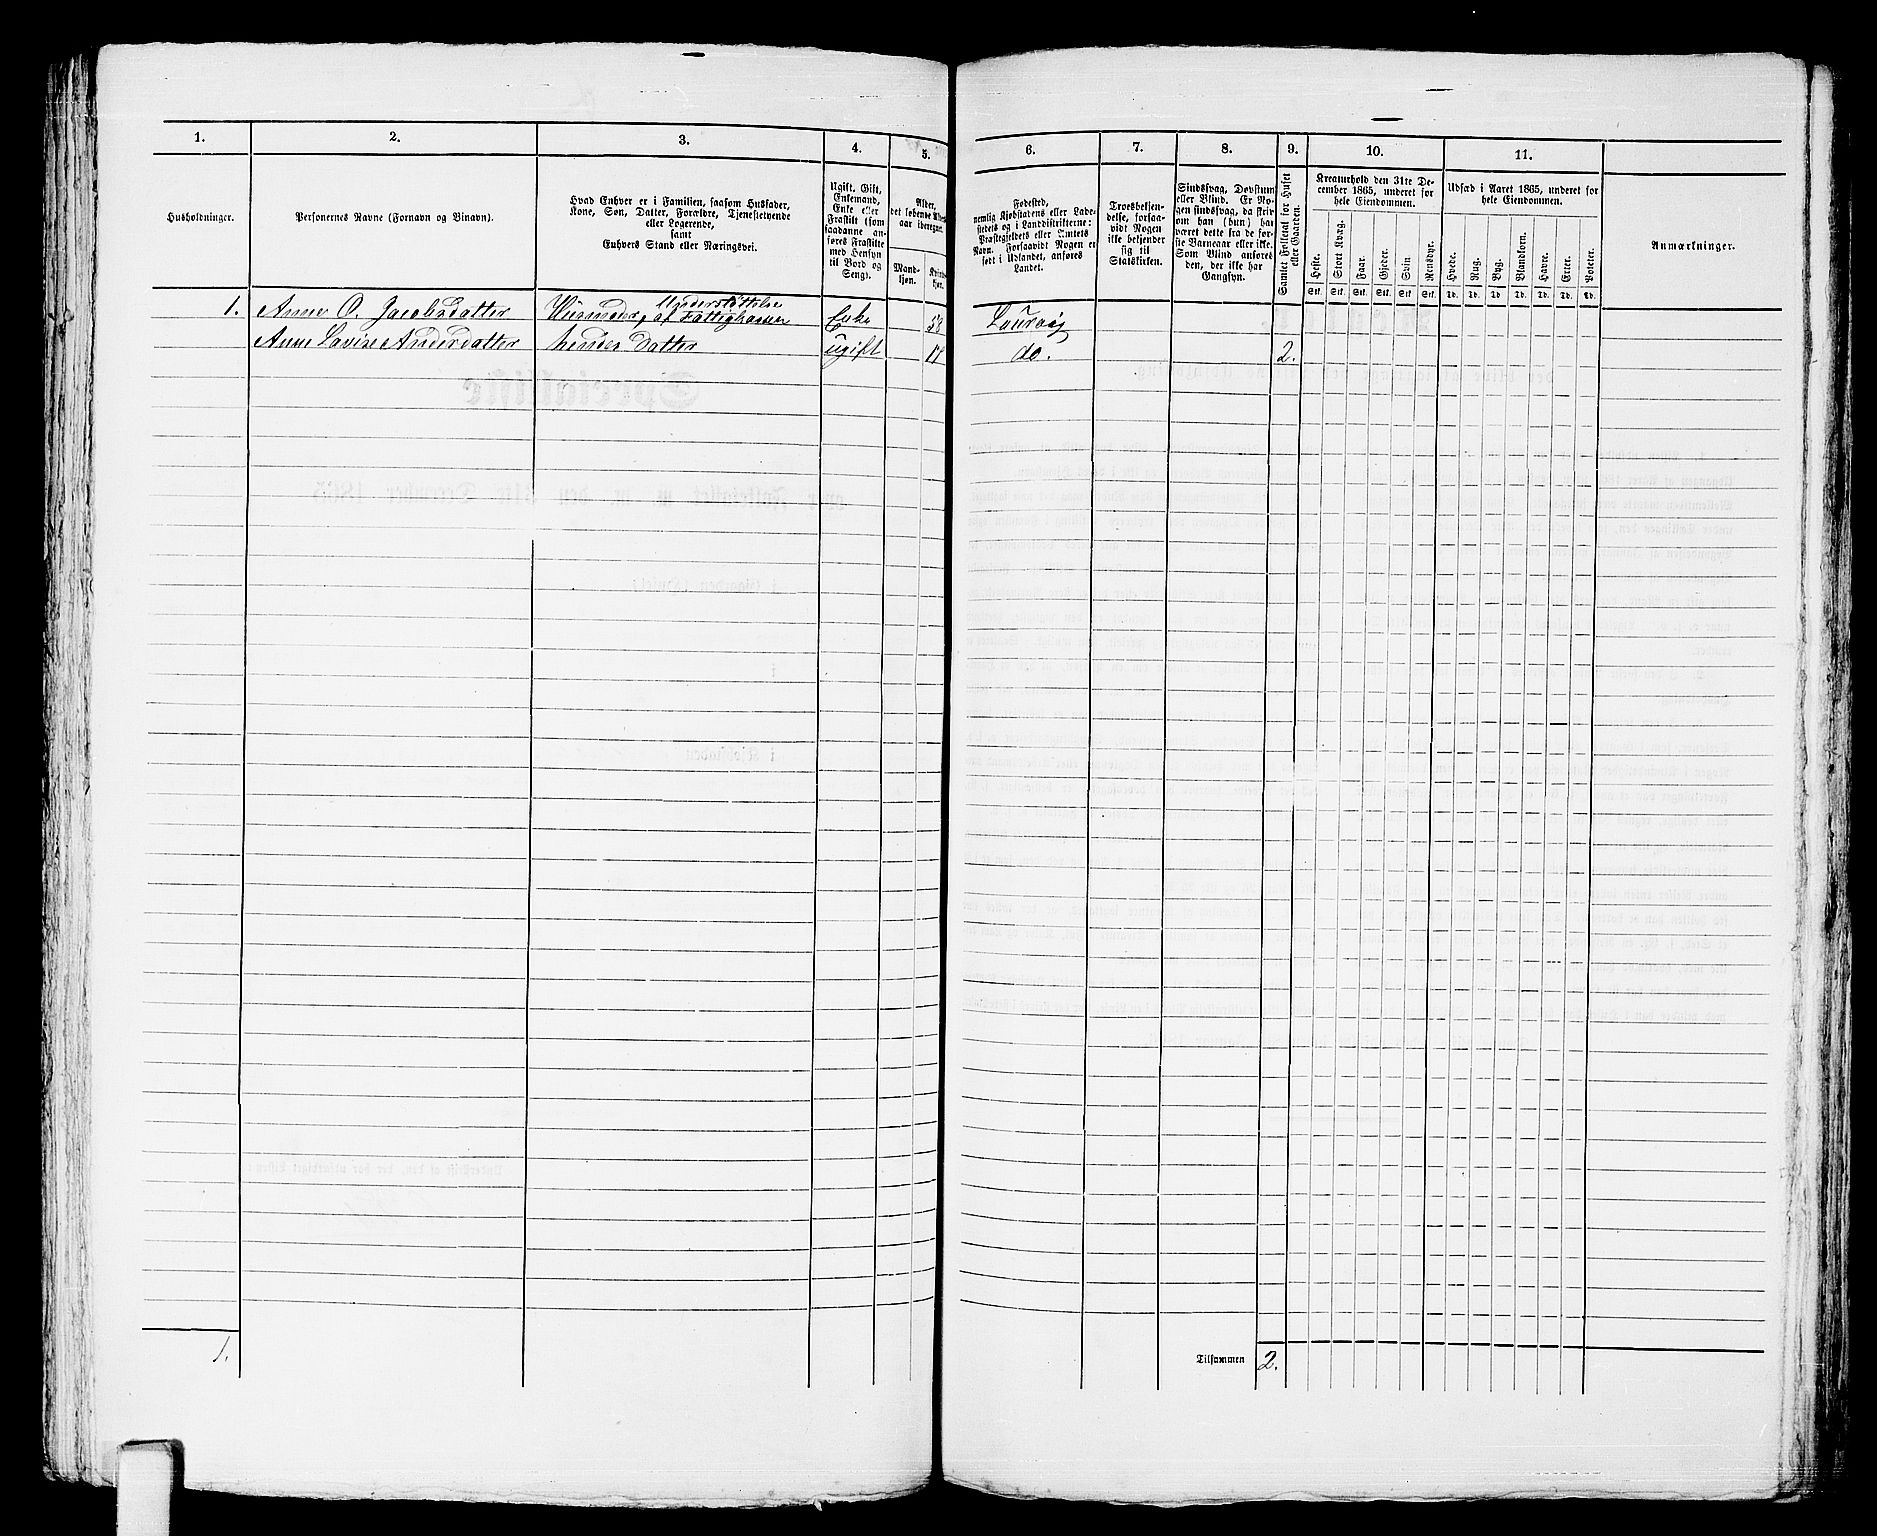 1. 2. 3. 4. 5. 6. 7. 8. 9. 10. 11.
Husholdninger.
Personernes Navne (Fornavn og Binavn).
Hvad Enhver er i Familien, saasom Husfader,
Kone, Søn, Datter, Forældre, Tjenestetyende
eller Logerende,
samt
Enhvers Stand eller Næringsvei.
Ugift, Gift,
Enkemand,
Enke eller
Fraskilt (som
saadanne an-
føres Fraskilte
med Hensyn
til Bord og
Seng).
Alder,
Mand-
kjøn.
Kvinde-
kjøn.
Fødested,
nemlig Kjøbstadens eller Lade-
stedets og i Landdistrikterne:
Præstegjeldets eller Amtets
Navn. Forsaavidt Nogen er
født i Udlandet, anføres
Landet.
Troesbekjen-
delse, forsaa-
vidt Nogen
ikke bekjender
sig til
Statskirken.
Sindssvag, Døvstum
eller Blind. Er No-
gen sindssvag, da skriv
om han (hun) har
været dette fra de før-
ste Barneaar eller ikke.
Som Blind anføres
den, der ikke har
Gangsyn.
Samlet Folketal for Huset
eller Gaarden.
Kreaturhold den 31te De-
cember 1865, underet for
hele Eiendommen.
Heste. Stort Kvæg. Faar. Gjeder. Svin. Rensdyr.
Stk. Stk. Stk. Stk. Stk. Stk.
Udsæd i Aaret 1865, underet for
hele Eiendommen.
Hvede. Rug. Byg. Blandkorn. Havre. Erter. Poteter.
Td. Td. Td. Td. Td. Td. Td.
Anmærkninger.
1. Anne O. Jacobsdatter Huusmoder, Understøttelse af Fattighassen Enke 58 Laurvig
Anne Lavise Andersdatter hendes Datter ugift do. 2.
1.
Tilsammen 2.